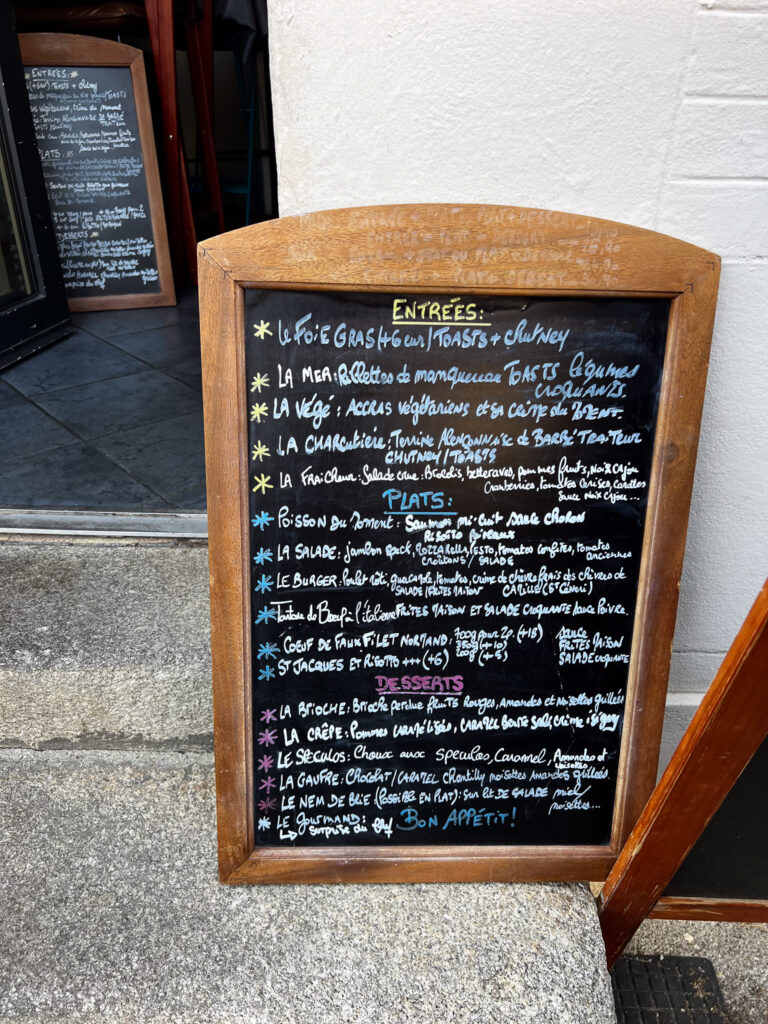 ENTRÉES:
Le FOIE GRAS (+6 eur) / TOASTS + chutney
LA MER: Rillettes de maquereau TOASTS légumes
CROQUANTS.
LA végé: ACCRAS végétariens et sa crème du MOMENT.
LA CHARCUTIÈRE: Terrine Alençonnaise de BARBÉ TRAITEUR
CHUTNEY / TOASTS
LA FRAICHEUR: Salade crue: Brocolis, betteraves, pommes fruits, Noix Cajou
Cranberries, tomates Cerises, Carottes
Sauce Noix Cajou...
PLATS:
POISSON DU MOMENT: Saumon mi-cuit sauce Choron
RISOTTO POIREAUX
LA SALADE: jambon speck, MOZZARELLA, PESTO, tomates confites, tomates
anciennes
CROUTONS / SALADE
LE BURGER: Poulet rôti, guacamole, tomates, crème de chèvre frais des chèvres de
SALADE / FRITES MAISON CAMILLE (ST Céneri)
Tartare de Boeuf à l'italienne FRITES MAISON ET SALADE CROQUANTE sauce Poivre.
COEUF DE FAUX FILET NORMAND: 700g pour 2p. (+18) sauce
350g (+10) FRITES MAISON
200g (+5) SALADE CROQUANTE
ST JACQUES ET RISOTTO +++ (+6)
DESSERTS
LA BRIOCHE: Brioche perdue fruits Rouges, Amandes et Noisettes grillées
LA CRÊPE: Pommes caramélisées, CARAMEL Beurre salé, Crème isigny
LE SPÉCULOS: Choux aux speculos, Caramel, Amandes et
noisettes.
LA GAUFRE: Chocolat / CARAMEL Chantilly noisettes Amandes grillées.
LE NEM DE BRIE (Possible EN PLAT): Sur lit DE SALADE miel /
noisettes...
LE gourmand:
↳ surprise du chef
BON APPÉTIT!
ENTRÉES:
PLATS:
DESSERTS